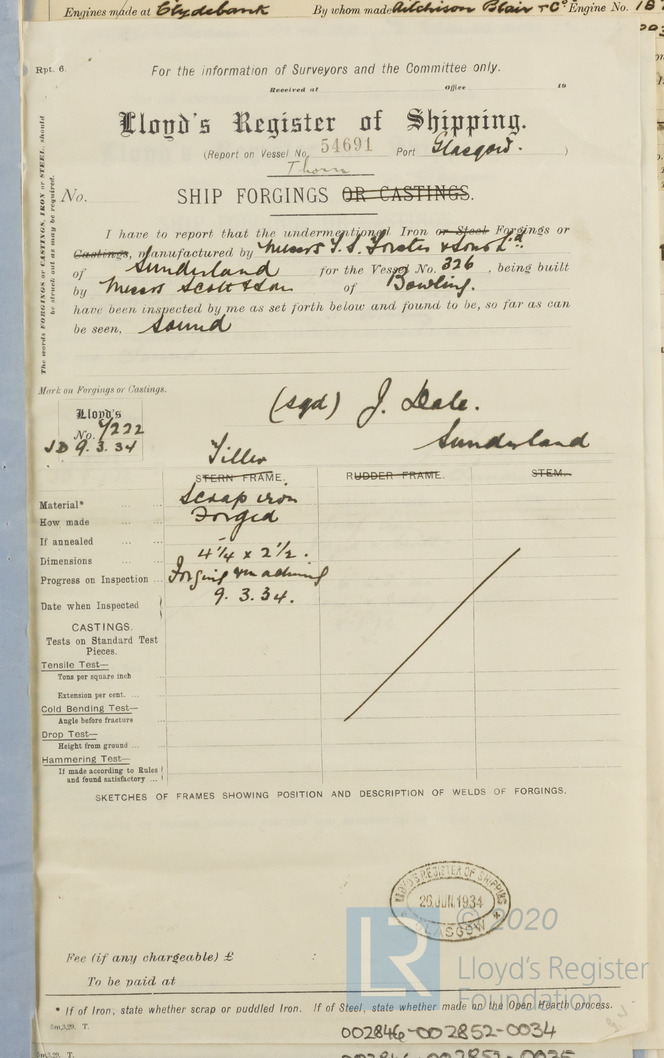 Engines made at Clydebank By whom made Aitchison Blair & Co Engine No. 187
Rpt. 6.
For the information of Surveyors and the Committee only.
Received at Office 19
Lloyd's Register of Shipping.
(Report on Vessel No. 54691 Port Glasgow. )
Thorn
No. SHIP FORGINGS OR CASTINGS.
The words FORGINGS or CASTINGS, IRON or STEEL, should
be struck out as may be required.
I have to report that the undermentioned Iron or Steel Forgings or
Castings, manufactured by Messrs T. S. Forster & Sons Ld
of Sunderland for the Vessel No. 326, being built
by Messrs Scott & Son of Bowling.
have been inspected by me as set forth below and found to be, so far as can
be seen, sound
Mark on Forgings or Castings.
Lloyd's
No. 7222
JD 9.3.34
(sgd) J. Dale.
Sunderland
Tiller
STERN FRAME. RUDDER FRAME. STEM.
Material* ... ... Scrap iron
How made ... ... Forged
If annealed ... ... -
Dimensions ... ... 4 1/4 x 2 1/2.
Progress on Inspection ... Forging & machining
Date when Inspected 9.3.34.
CASTINGS.
Tests on Standard Test
Pieces.
Tensile Test—
Tons per square inch
Extension per cent. ...
Cold Bending Test—
Angle before fracture
Drop Test—
Height from ground ...
Hammering Test—
If made according to Rules
and found satisfactory ...
SKETCHES OF FRAMES SHOWING POSITION AND DESCRIPTION OF WELDS OF FORGINGS.
LLOYD'S REGISTER OF SHIPPING
26 JUN. 1934
GLASGOW
LR © 2020
Lloyd's Register
Foundation
Fee (if any chargeable) £ :
To be paid at
* If of Iron, state whether scrap or puddled Iron. If of Steel, state whether made on the Open Hearth process.
5m,3,29. T.
002846-002852-0034
5m,3,29. T.
002846-002852-0035